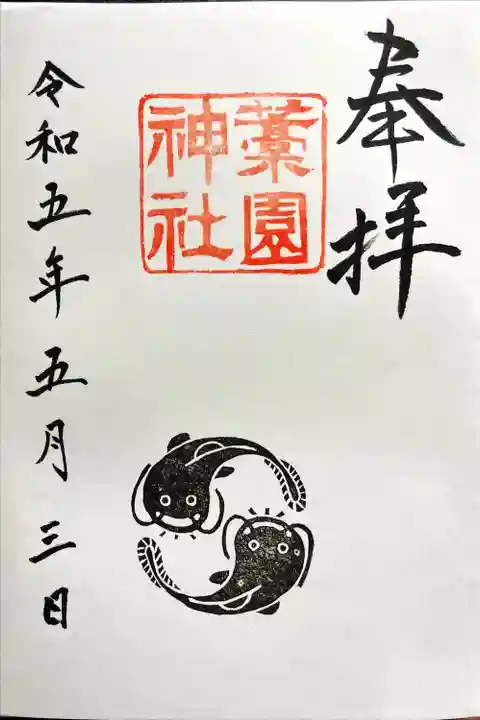 奉拝
藁園
神社
令和五年五月三日